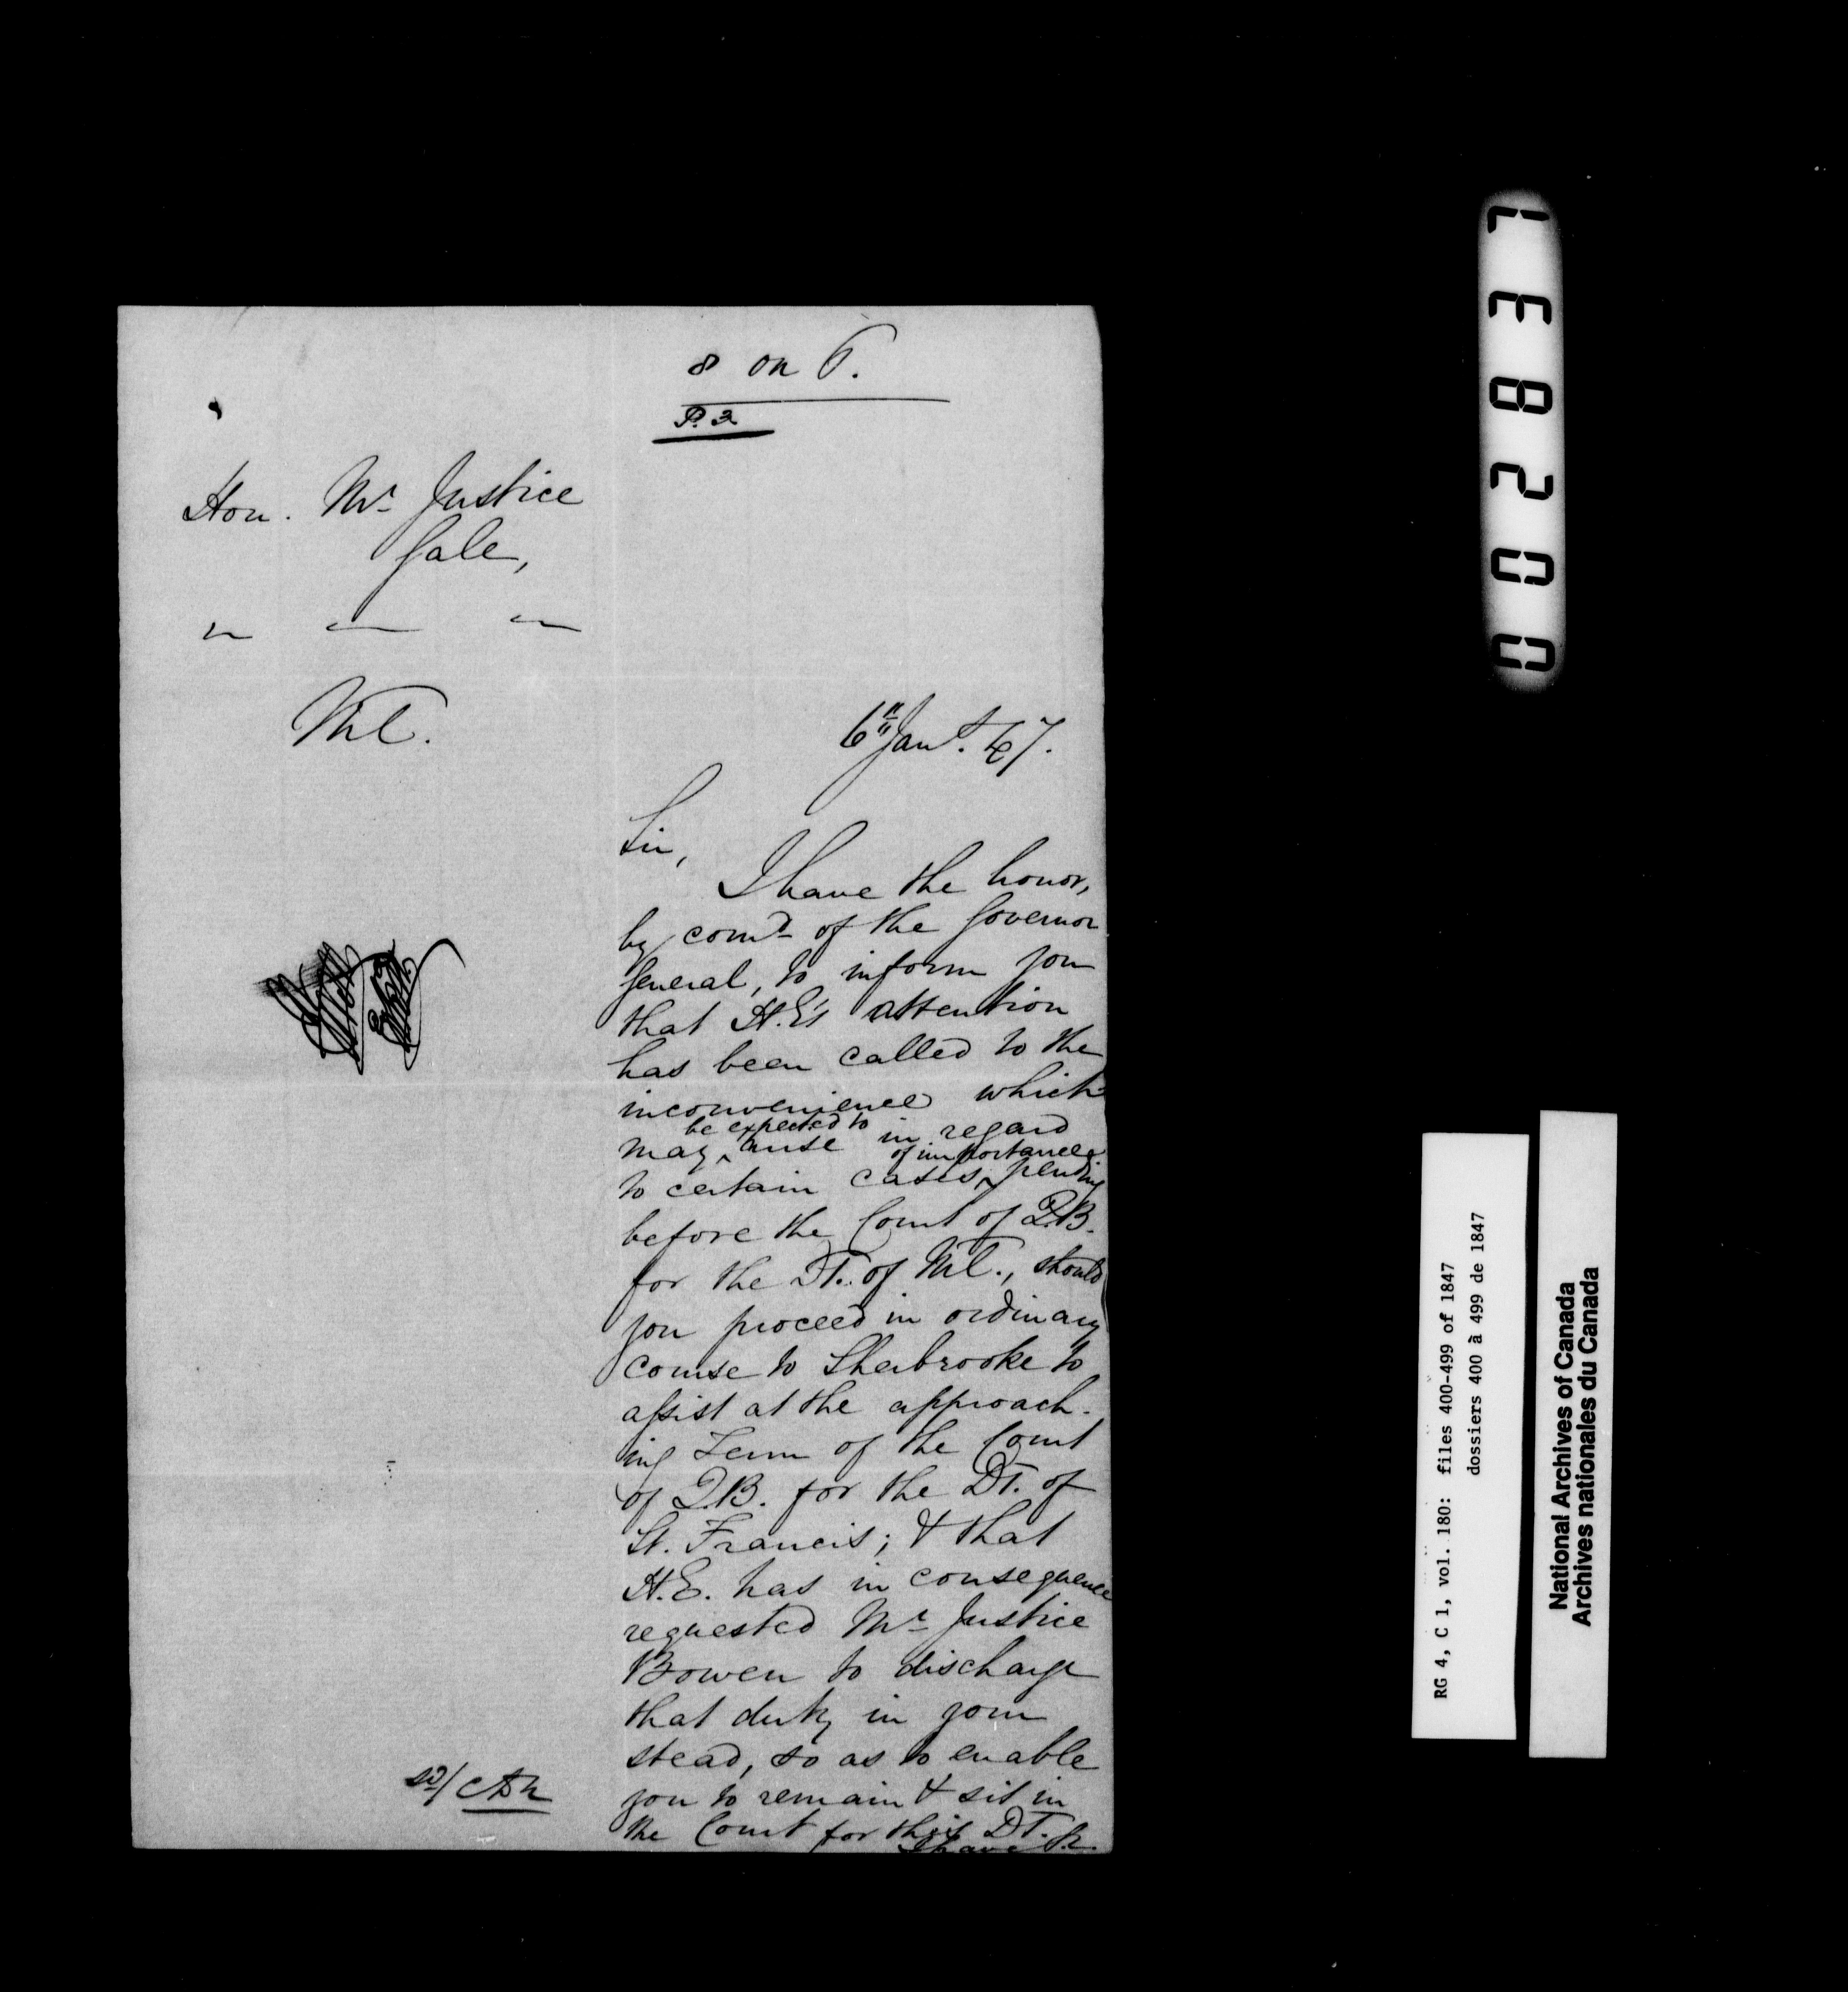 8 on 6.
P. 2
Hon. Mr. Justice
Gale,
" — "
Mtl.
6th Jany. 47.
Sir,
I have the honor,
by comd. of the Governor
General, to inform you
that H.E's attention
has been called to the
inconvenience which
be expected to
may ^ arise in regard
of importance
to certain cases ^ pending
before the Court of Q.B.
for the DT. of Mtl., should
you proceed in ordinary
course to Sherbrooke to
assist at the approach-
ing Term of the Court
of Q.B. for the DT. of
St. Francis; & that
H.E. has in consequence
requested Mr. Justice
Bowen to discharge
that duty in your
stead, so as to enable
you to remain & sit in
the Court for this DT.
I have &c.
sd/
002837
RG 4, C 1, vol. 180: files 400-499 of 1847
dossiers 400 à 499 de 1847
National Archives of Canada
Archives nationales du Canada